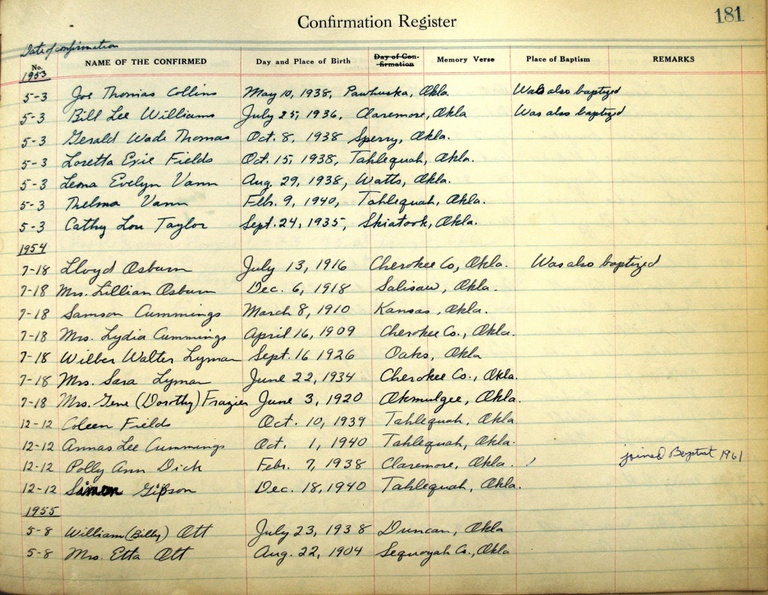 181
Confirmation Register
Date of confirmation
No. NAME OF THE CONFIRMED Day and Place of Birth Day of Confirmation Memory Verse Place of Baptism REMARKS
1953
5-3 Joe Thomas Collins May 10, 1938, Pawhuska, Okla Was also baptized
5-3 Bill Lee Williams July 25, 1936, Claremore, Okla Was also baptized
5-3 Gerald Wade Thomas Oct. 8, 1938 Sperry, Okla.
5-3 Loretta Evie Fields Oct. 15, 1938, Tahlequah, Okla.
5-3 Leona Evelyn Vann Aug. 29, 1938, Watts, Okla.
5-3 Thelma Vann Feb. 9, 1940, Tahlequah, Okla.
5-3 Cathy Lou Taylor Sept. 24, 1935, Skiatook, Okla.
1954
7-18 Lloyd Osburn July 13, 1916 Cherokee Co, Okla. Was also baptized
7-18 Mrs. Lillian Osburn Dec. 6, 1918 Salisaw, Okla.
7-18 Samson Cummings March 8, 1910 Kansas, Okla.
7-18 Mrs. Lydia Cummings April 16, 1909 Cherokee Co., Okla.
7-18 Wilber Walter Lyman Sept. 16 1926 Oaks, Okla
7-18 Mrs. Sara Lyman June 22, 1934 Cherokee Co., Okla.
7-18 Mrs. Gene (Dorothy) Frazier June 3, 1920 Okmulgee, Okla.
12-12 Coleen Fields Oct. 10, 1939 Tahlequah, Okla
12-12 Annas Lee Cummings Oct. 1, 1940 Tahlequah, Okla
12-12 Polly Ann Dick Feb. 7, 1938 Claremore, Okla. joined Baptist 1961
12-12 Simon Gibson Dec. 18, 1940 Tahlequah, Okla
1955
5-8 William (Billy) Ott July 23, 1938 Duncan, Okla
5-8 Mrs. Etta Ott Aug. 22, 1904 Sequoyah Co., Okla